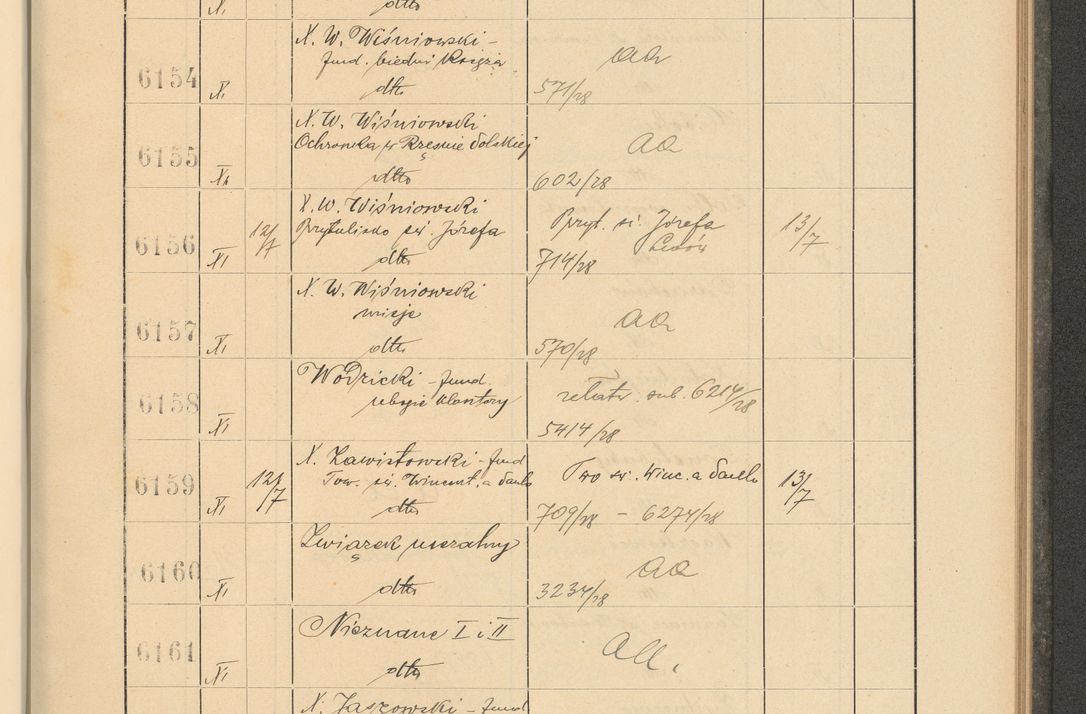 XI dtto
X. W. Wiśniowski -
fund. biedni Księża
6154 XI dtto 571/28 aa
X. W. Wiśniowski
Ochronka w Rzęśnie Polskiej
6155 XI dtto 602/28 aa
X. W. Wiśniowski
6156 XI 12/7 Przytulisko św. Józefa Przyt. św. Józefa 13/7
Lwów
dtto 714/28
X. W. Wiśniowski
misje
6157 XI dtto 570/28 aa
Wodzicki - fund.
6158 XI sub. 6214/28
5414/28
X. Zawistowski - fund
6159 XI 12/7 Tow. św. Wincent. a Paulo Two św. Winc. a Paulo 13/7
dtto 709/28 - 6274/28
Związek
6160 XI dtto 3234/28 aa
Nieznane I i II
6161 XI dtto aa.
X. Jaszowski - fund